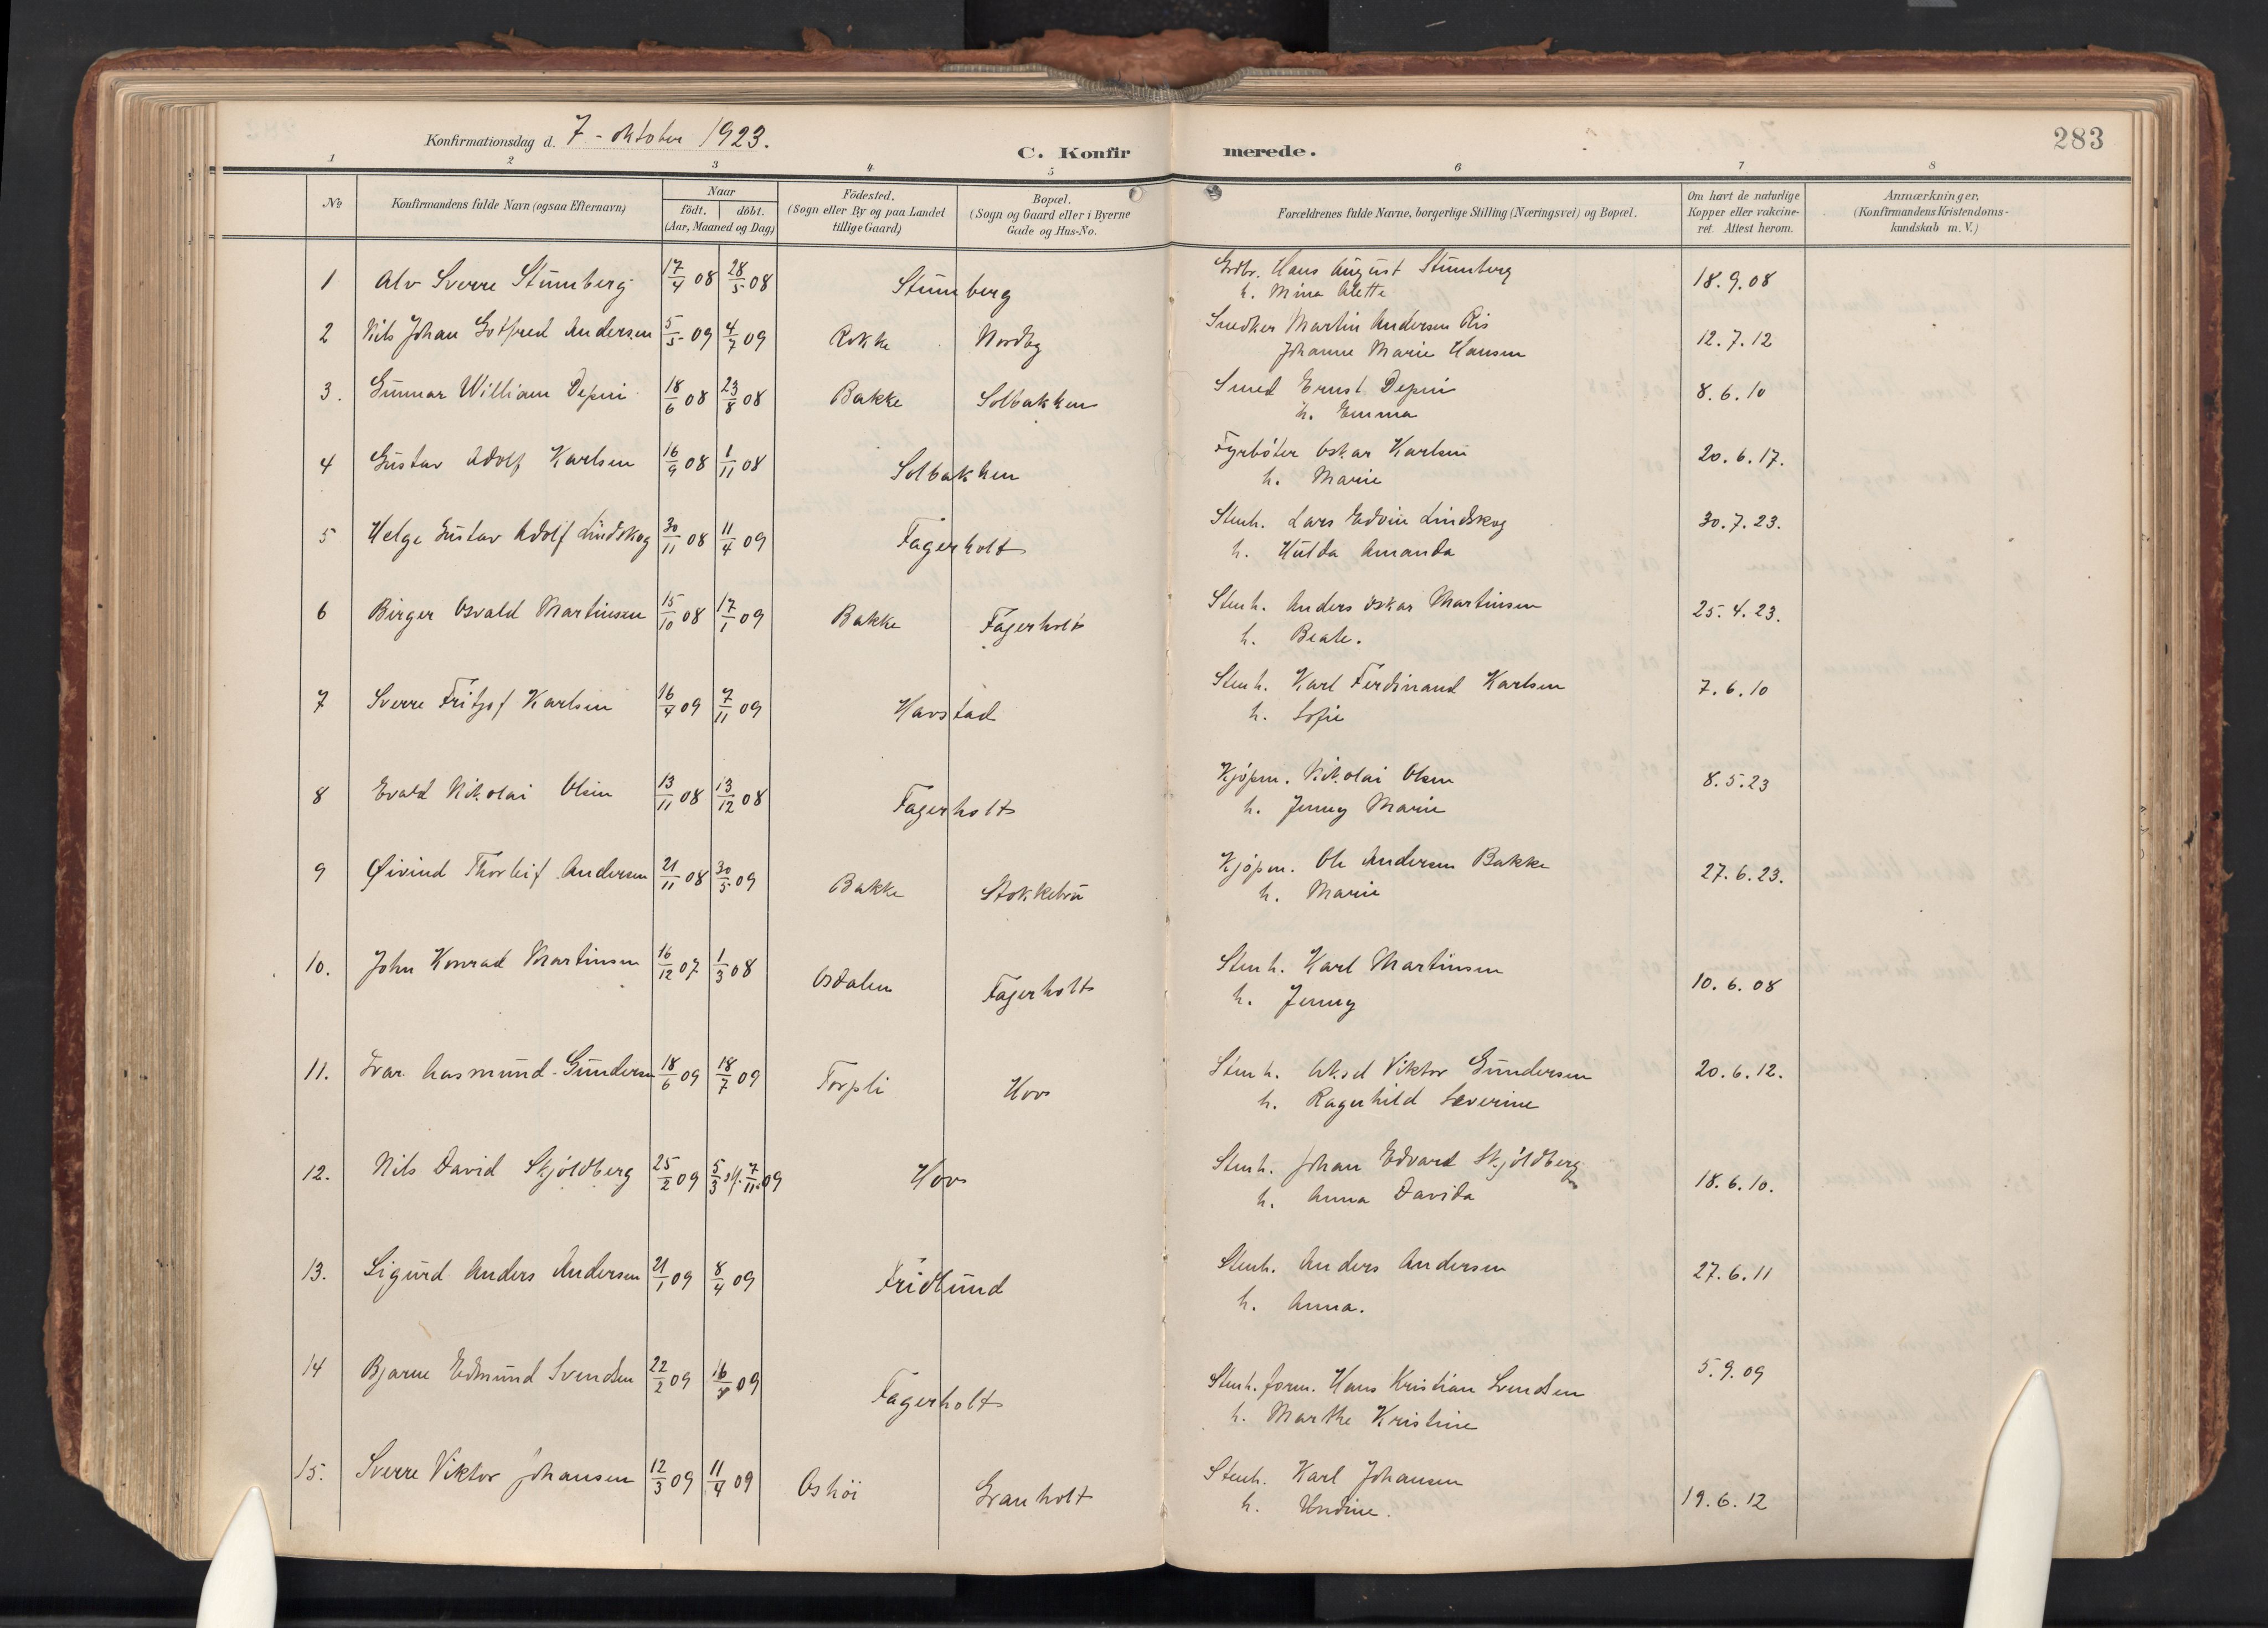 Konfirmationsdag d. 7 - oktober 1923.
C. Konfirmerede.
283
1 2 3 4 5 6 7 8
No
Konfirmandens fulde Navn (ogsaa Efternavn)
Naar
födt. döbt.
(Aar, Maaned og Dag)
Födested.
(Sogn eller By og paa Landet
tillige Gaard)
Bopæl.
(Sogn og Gaard eller i Byerne
Gade og Hus-No.
Forældrenes fulde Navne, borgerlige Stilling (Næringsvei) og Bopæl.
Om havt de naturlige
Kopper eller vakcine-
ret. Attest herom.
Anmærkninger,
(Konfirmandens Kristendoms-
kundskab m. V.)
1 Alv Sverre Stumberg 17/4 08 28/5 08 Stumberg Grdbr. Hans August Stumberg 18.9.08
h. Mina Alette
2 Nils Johan Gotfred Andersen 5/5 09 4/7 09 Rokke Nordby Snedker Martin Andersen Ris 12.7.12
Johanne Marie Hansen
3. Gunnar William Depui 18/6 08 23/8 08 Bakke Solbakken Smed Ernst Depui 8.6.10
h. Emma
4 Gustav Adolf Karlsen 16/9 08 1/11 08 Solbakken Fyrbøter Oskar Karlsen 20.6.17.
h. Marie
5 Helge Gustav Adolf Lindskog 30/11 08 11/4 09 Fagerholt Stenh. Lars Edvin Lindskog 30.7.23.
h. Hulda Amanda
6 Birger Osvald Martinsen 15/10 08 17/1 09 Bakke Fagerholt Stenh. Anders Oskar Martinsen 25.4.23.
h. Beate.
7 Sverre Fritjof Karlsen 16/4 09 7/11 09 Havstad Stenh. Karl Ferdinand Karlsen 7.6.10
h. Sofie
8 Evald Nikolai Olsen 13/11 08 13/12 08 Fagerholt Kjøpm. Nikolai Olsen 8.5.23
h. Jenny Marie
9 Øivind Thorleif Andersen 21/11 08 30/5 09 Bakke Stokkebru Kjøpm. Ole Andersen Bakke 27.6.23.
h. Marie
10. John Konrad Martinsen 16/12 07 1/3 08 Osdalen Fagerholt Stenh. Karl Martinsen 10.6.08
h. Jenny
11. Ivar Aasmund Gundersen 18/6 09 18/7 09 Torpli Hov Stenh. Aksel Viktor Gundersen 20.6.12.
h. Ragnhild Severine
12. Nils David Skjöldberg 25/2 09 5/3 st. 7/11 09 Hov Stenh. Johan Edvard Skjöldberg 18.6.10.
h. Anna Davida
13. Sigurd Anders Andersen 21/1 09 8/4 09 Fridlund Stenh. Anders Andersen 27.6.11
h. Anna.
14 Bjarne Edmund Svendsen 22/2 09 16/ 09 Fagerholt Stenh. form. Hans Kristian Svendsen 5.9.09
h. Marthe Kristine
15. Sverre Viktor Johansen 12/3 09 11/4 09 Oshöi Granholt Stenh. Karl Johansen 19.6.12
h. Undine.